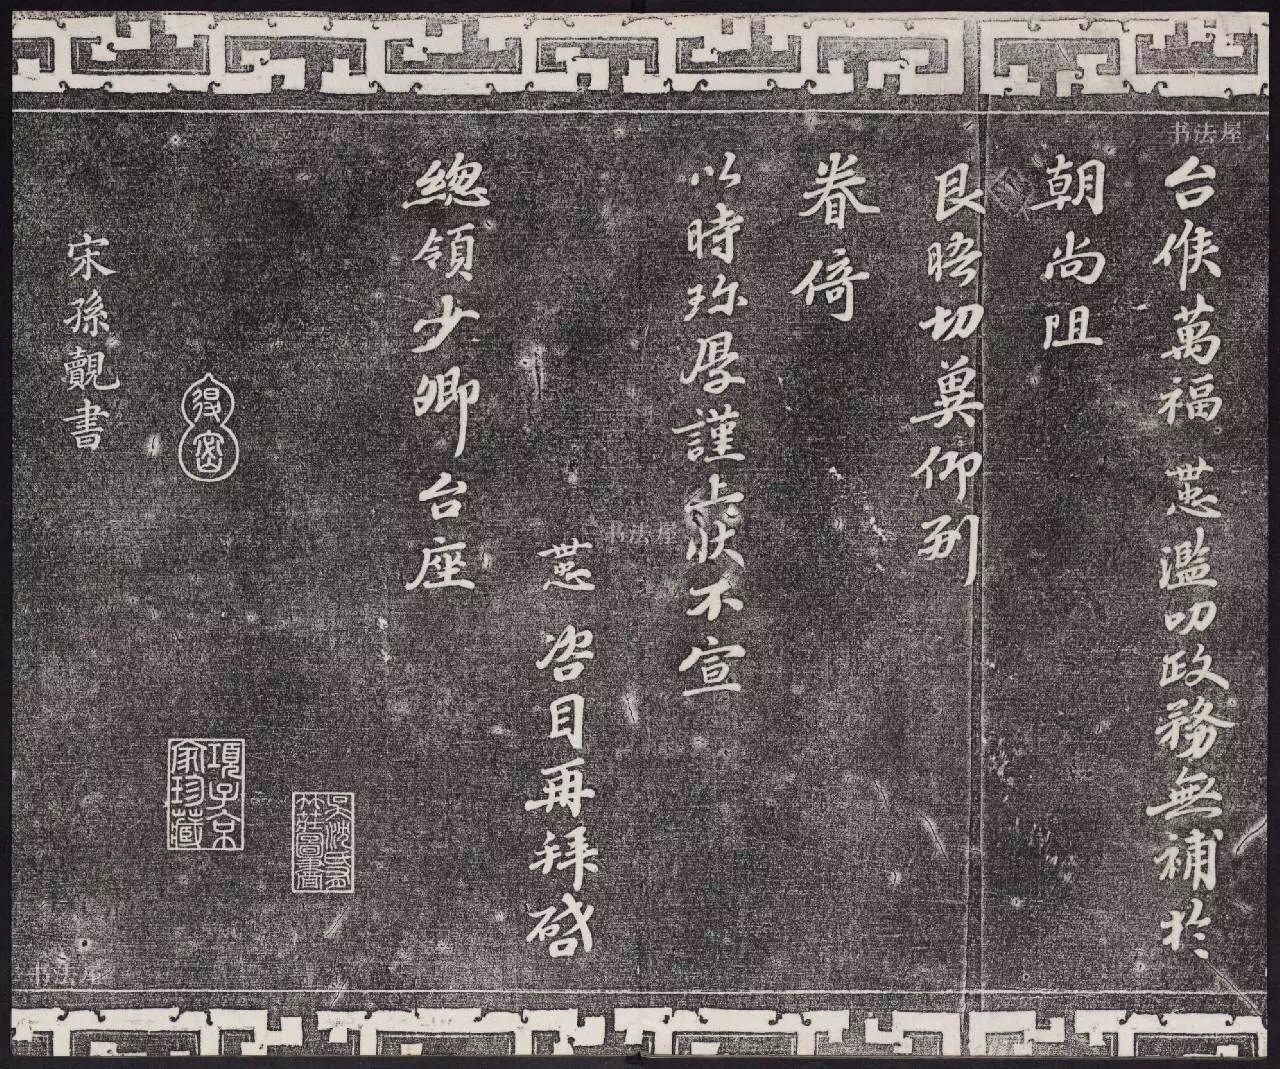 台候萬福 濫叨政務無補於
朝尚阻
良晤切冀仰副
眷倚
以時珎厚謹上狀不宣
咨目再拜啓
總領少卿台座
宋孫覿書
項子京家珍藏
书法屋
书法屋
书法屋